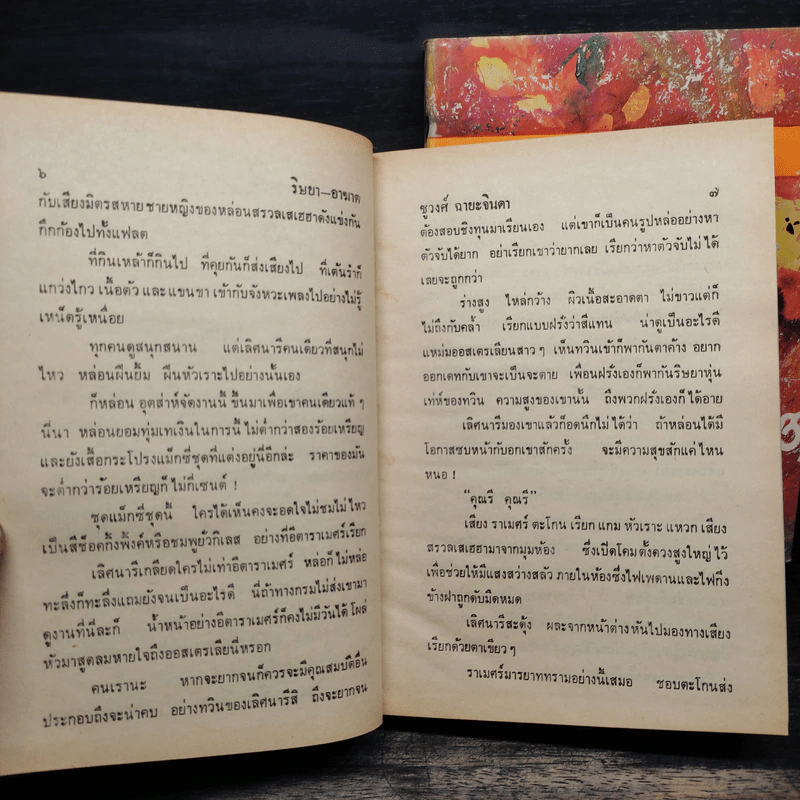 ๖
ริษยา—อาฆาต
กับเสียงมิตรสหายชายหญิงของหล่อนสรวลเสเฮฮาดังแข่งกัน
กึกก้องไปทั้งแฟลต
ที่กินเหล้าก็กินไป ที่คุยกันก็ส่งเสียงไป ที่เต้นรำก็
แกว่งไกว เนื้อตัว และแขนขา เข้ากับจังหวะเพลงไปอย่างไม่รู้
เหน็ดรู้เหนื่อย
ทุกคนดูสนุกสนาน แต่เลิศนารีคนเดียวที่สนุกไม่
ไหว หล่อนฝืนยิ้ม ฝืนหัวเราะไปอย่างนั้นเอง
ก็หล่อน อุตส่าห์จัดงานนี้ ขึ้นมาเพื่อเขาคนเดียวแท้ ๆ
นี่นา หล่อนยอมทุ่มเทเงินในการนี้ ไม่ต่ำกว่าสองร้อยเหรียญ
และยังเสื้อกระโปรงแม็กซี่ชุดที่แต่งอยู่นี่อีกล่ะ ราคาของมัน
จะต่ำกว่าร้อยเหรียญก็ ไม่กี่เซนต์ !
ชุดแม็กซี่ชุดนี้ ใครได้เห็นคงจะอดใจไม่ชมไม่ไหว
เป็นสีช็อคกิ้งพิ้งค์หรือชมพูยั่วกิเลส อย่างที่อีตาราเมศร์เรียก
เลิศนารีเกลียดใครไม่เท่าอีตาราเมศร์ หล่อก็ไม่หล่อ
ทะลึ่งก็ทะลึ่งแถมยังจนเป็นอะไรดี นี่ถ้าทางกรมไม่ส่งเขามา
ดูงานที่นี่ละก็ น้ำหน้าอย่างอีตาราเมศร์ก็คงไม่มีวันได้โผล่
หัวมาสูดลมหายใจถึงออสเตรเลียนี่หรอก
คนเรานะ หากจะยากจนก็ควรจะมีคุณสมบัติอื่น
ประกอบถึงจะน่าคบ อย่างทวินของเลิศนารีสิ ถึงจะยากจน
ชูวงศ์ ฉายะจินดา
๗
ต้องสอบชิงทุนมาเรียนเอง แต่เขาก็เป็นคนรูปหล่ออย่างหา
ตัวจับได้ยาก อย่าเรียกเขาว่ายากเลย เรียกว่าหาตัวจับไม่ได้
เลยจะถูกกว่า
ร่างสูง ไหล่กว้าง ผิวเนื้อสะอาดตา ไม่ขาวแต่ก็
ไม่ถึงกับคล้ำ เรียกแบบฝรั่งว่าสีแทน น่าดูเป็นอะไรดี
แหม่มออสเตรเลียนสาว ๆ เห็นทวินเข้าก็พากันตาค้าง อยาก
ออกเดทกับเขาจะเป็นจะตาย เพื่อนฝรั่งเองก็พากันริษยาหุ่น
เท่ห์ของทวิน ความสูงของเขานั้น ถึงพวกฝรั่งเองก็ได้อาย
เลิศนารีมองเขาแล้วก็อดนึกไม่ได้ว่า ถ้าหล่อนได้มี
โอกาสซบหน้ากับอกเขาสักครั้ง จะมีความสุขสักแค่ไหน
หนอ !
“คุณรี คุณรี”
เสียง ราเมศร์ ตะโกน เรียก แกม หัวเราะ แหวก เสียง
สรวลเสเฮฮามาจากมุมห้อง ซึ่งเปิดโคมตั้งดวงสูงใหญ่ไว้
เพื่อช่วยให้มีแสงสว่างสลัว ภายในห้องซึ่งไฟเพดานและไฟกิ่ง
ข้างฝาถูกดับมืดหมด
เลิศนารีสะดุ้ง ผละจากหน้าต่างหันไปมองทางเสียง
เรียกด้วยตาเขียว ๆ
ราเมศร์มารยาททรามอย่างนี้เสมอ ชอบตะโกนส่ง